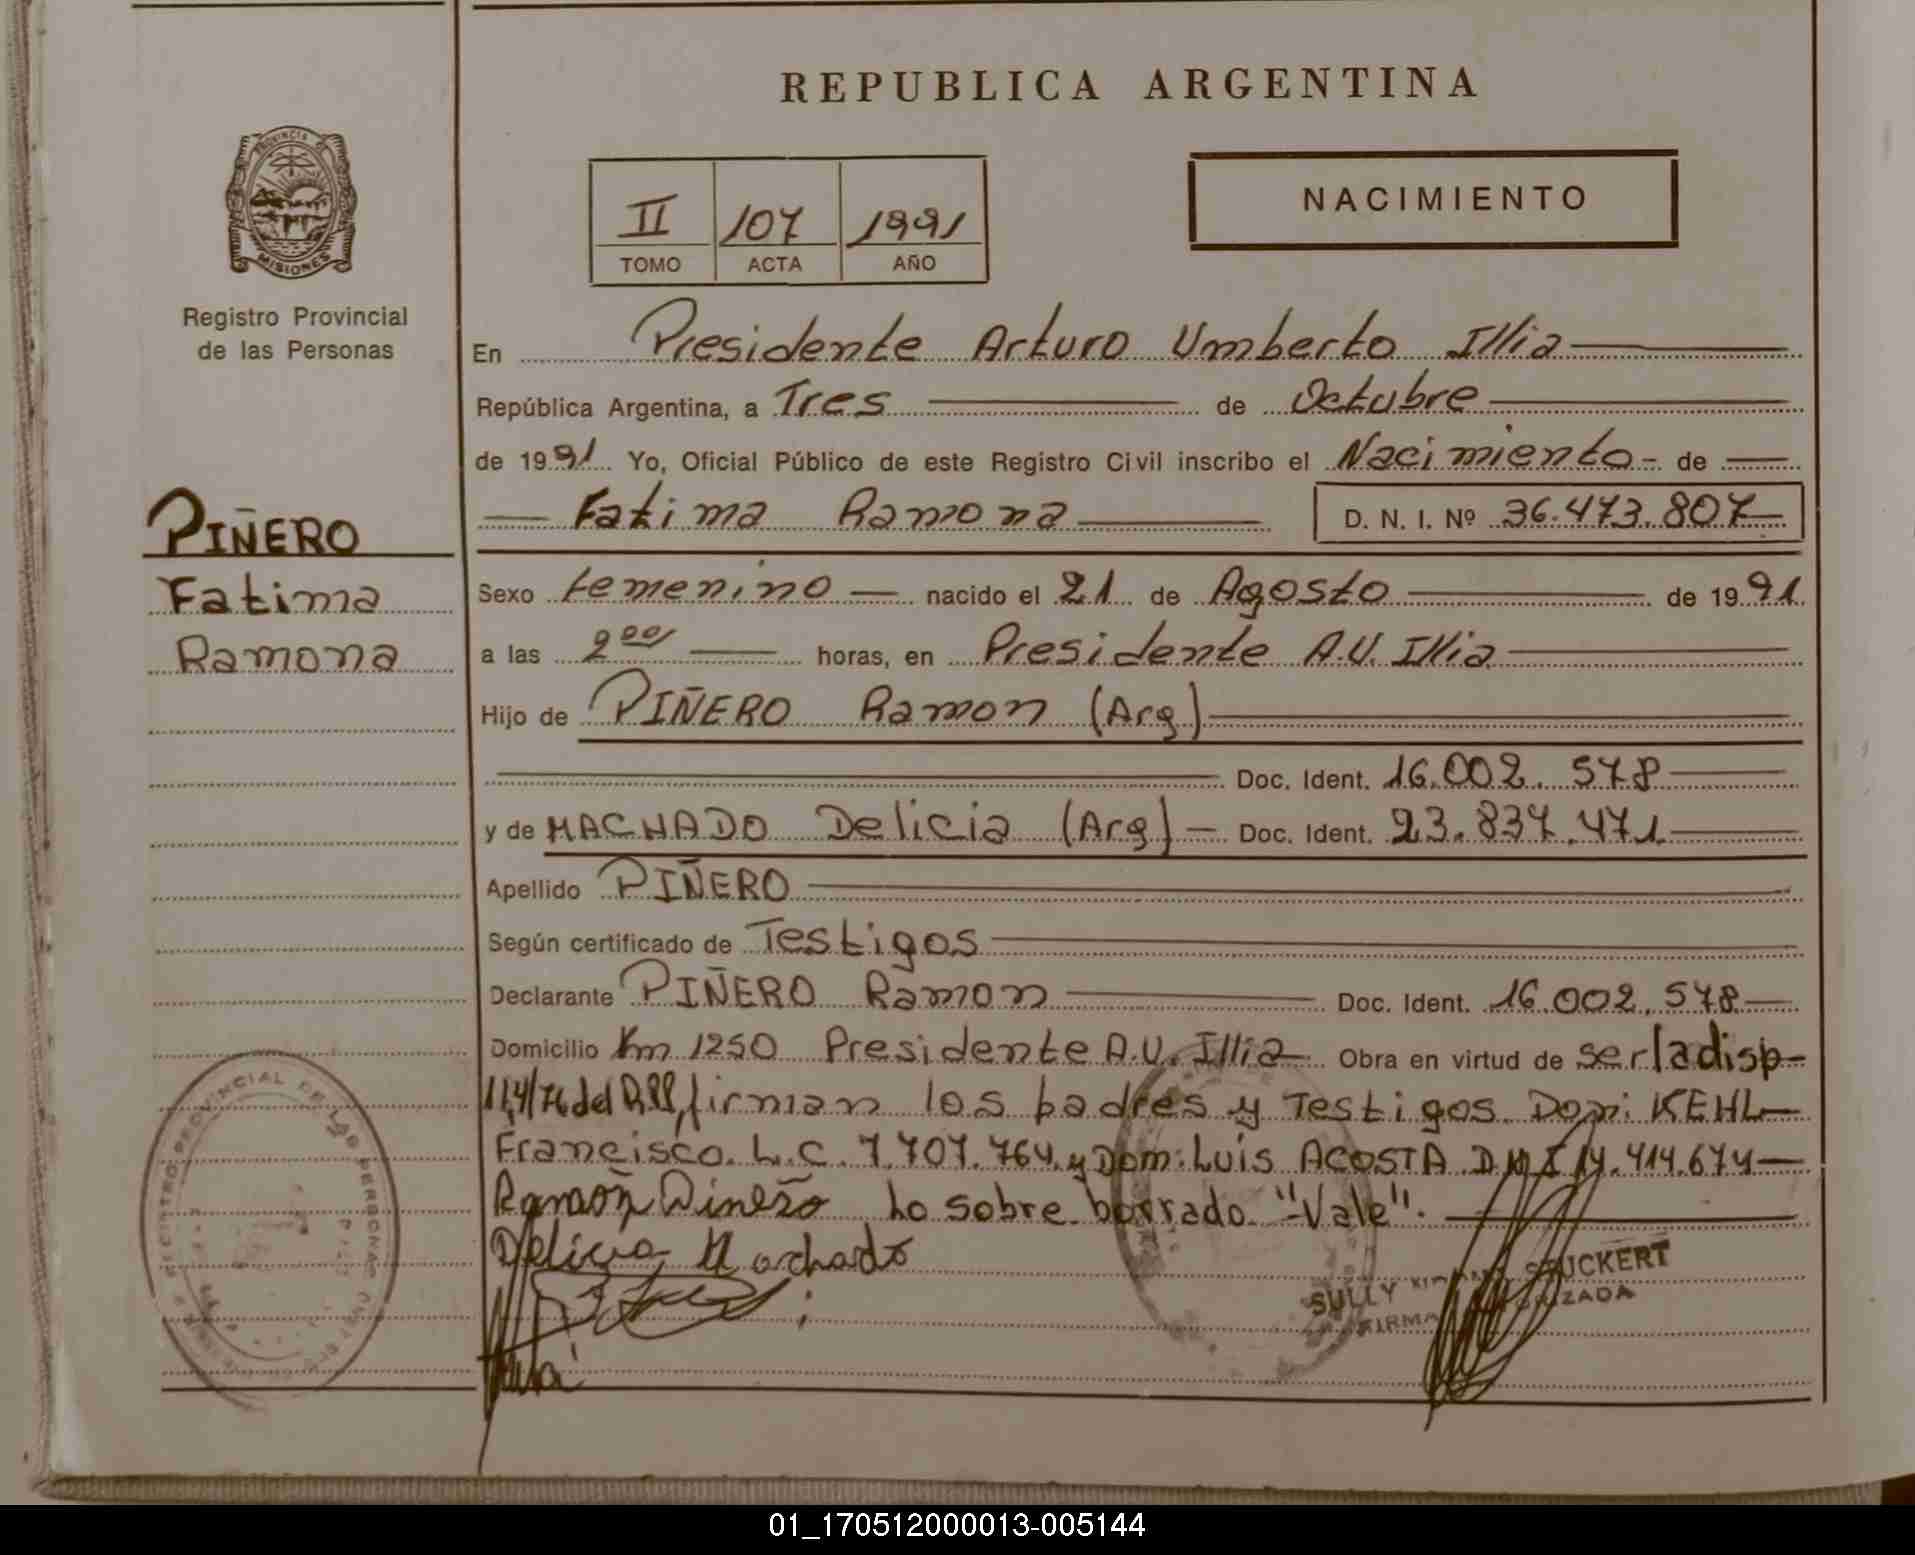 REPUBLICA ARGENTINA
PROVINCIA
MISIONES
Registro Provincial
de las Personas
II 107 1991
TOMO ACTA AÑO
NACIMIENTO
En Presidente Arturo Umberto Illia
República Argentina, a Tres de Octubre
de 1991 Yo, Oficial Público de este Registro Civil inscribo el Nacimiento de
Fatima Ramona D. N. I. Nº 36.473.807
PIÑERO
Fatima
Ramona
Sexo femenino nacido el 21 de Agosto de 1991
a las 2 00 horas, en Presidente A.U. Illia
Hijo de PIÑERO Ramon (Arg)
Doc. Ident. 16.002.578
y de MACHADO Delicia (Arg) Doc. Ident. 23.837.471
Apellido PIÑERO
Según certificado de Testigos
Declarante PIÑERO Ramon Doc. Ident. 16.002.578
Domicilio Km 1250 Presidente A.U. Illia Obra en virtud de ser la disp
114/76 del R.PP, firman los padres y Testigos Don: KEHL
Francisco. L.C. 7.707.764 y Dom: Luis ACOSTA D.N.I 14.414.674
Ramón Piñero Lo sobre borrado "Vale".
Delicia Machado
SULLY STUCKERT
FIRMA AUTORIZADA
REGISTRO PROVINCIAL DE LAS PERSONAS
01_170512000013-005144